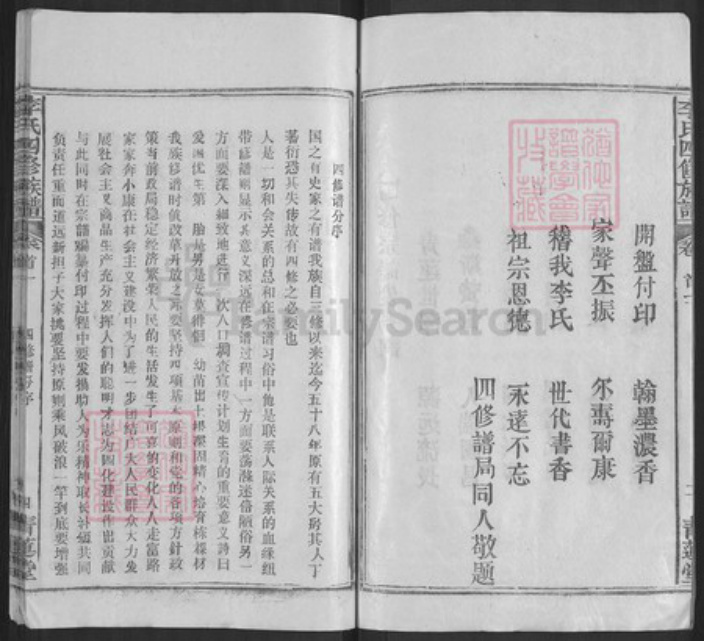 李氏四修族譜
卷首一
二
青蓮堂
開盤付印　翰墨濃香
家聲丕振　尔壽爾康
稽我李氏　世代書香
祖宗恩德　永遠不忘
四修譜局同人敬題
四修譜分序
国之有史家之有譜我族自三修以来迄今五十八年原有五大房其人丁
蕃衍恐其失传故有四修之必要也
人是一切和会关系的总和在宗譜习俗中他是联系人际关系的血缘纽
带修譜则显示其意义深远在修谱过程中一方面要荡滌迷信陋俗另一
方面要深入細致地进行一次人口調查宣传计划生育的重要意义詩曰
爱国优生第一胎是男是女莫徘徊　幼苗出土根深固精心培育栋樑材
我族修谱时值改革开放之际要坚持四项基本原则和党的各项方針政
策当前政局稳定经济繁荣人民的生活发生了可喜的变化人人走富路
家家奔小康在社会主义建设中为了进一步团结广大人民群众大力发
展社会主义商品生产充分发挥人们的聪明才志为四化建设作出贡献
与此同时在宗譜编纂付印过程中要发揚助人为乐精神取长补短共同
负责任重而道远新担子大家挑要坚持原则乘风破浪一竿到底要增强
李氏四修族譜
卷首一
四修譜分序
四
青蓮堂
FamilySearch